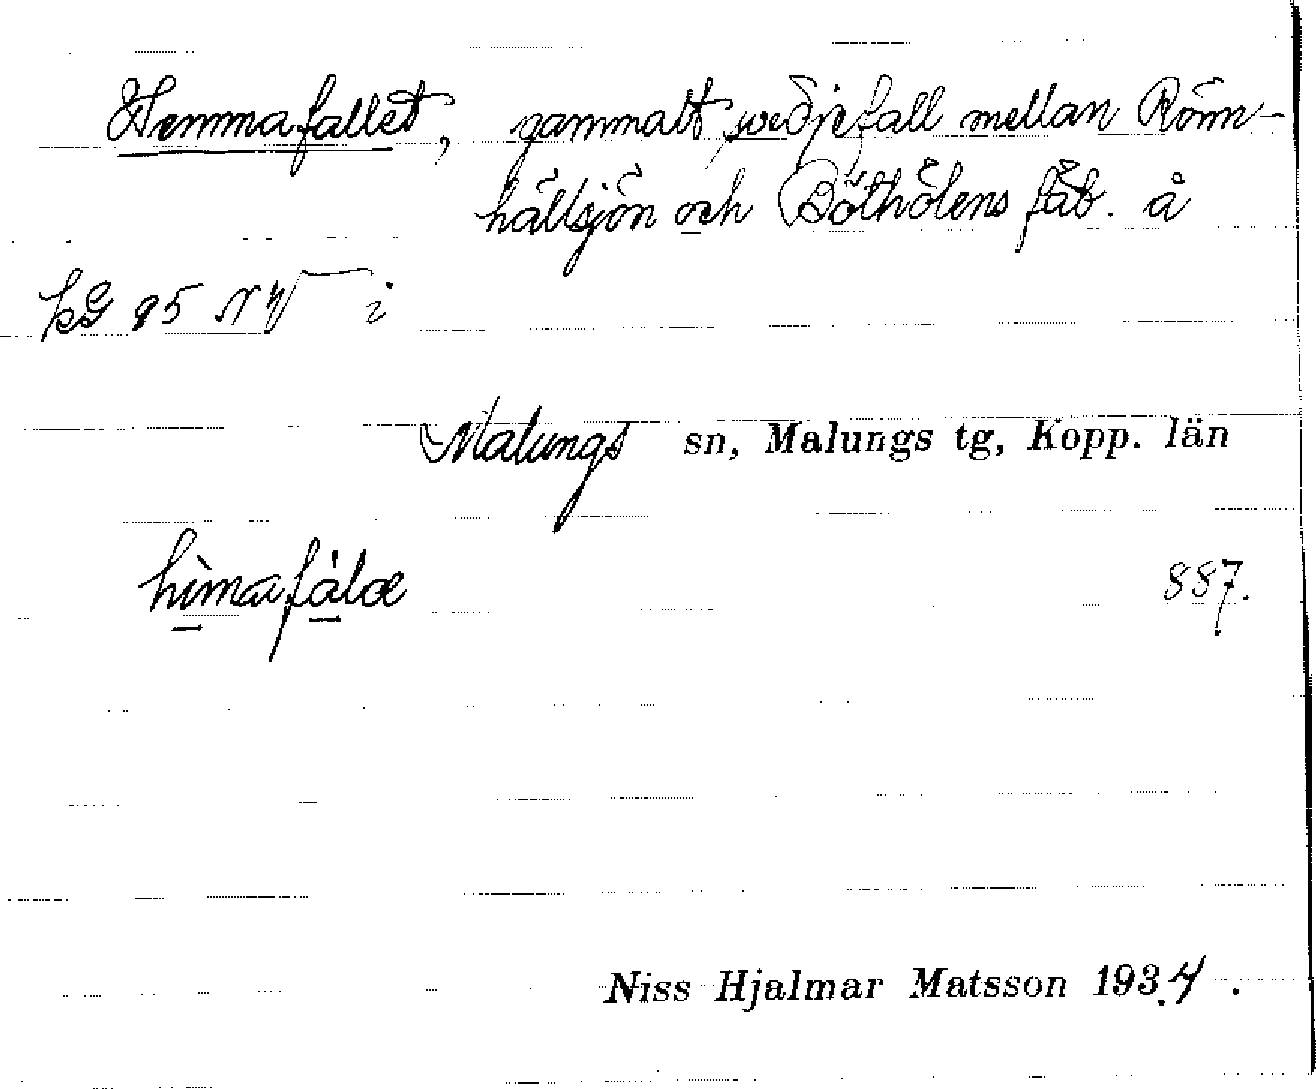 Hemmafallet, gammalt svedjefall mellan Rönn-
hällsjön och Böthölens fäb. å
kG 95 NV i
Malungs sn, Malungs tg, Kopp. län
hìmafàlæ 887.
Niss Hjalmar Matsson 1934.